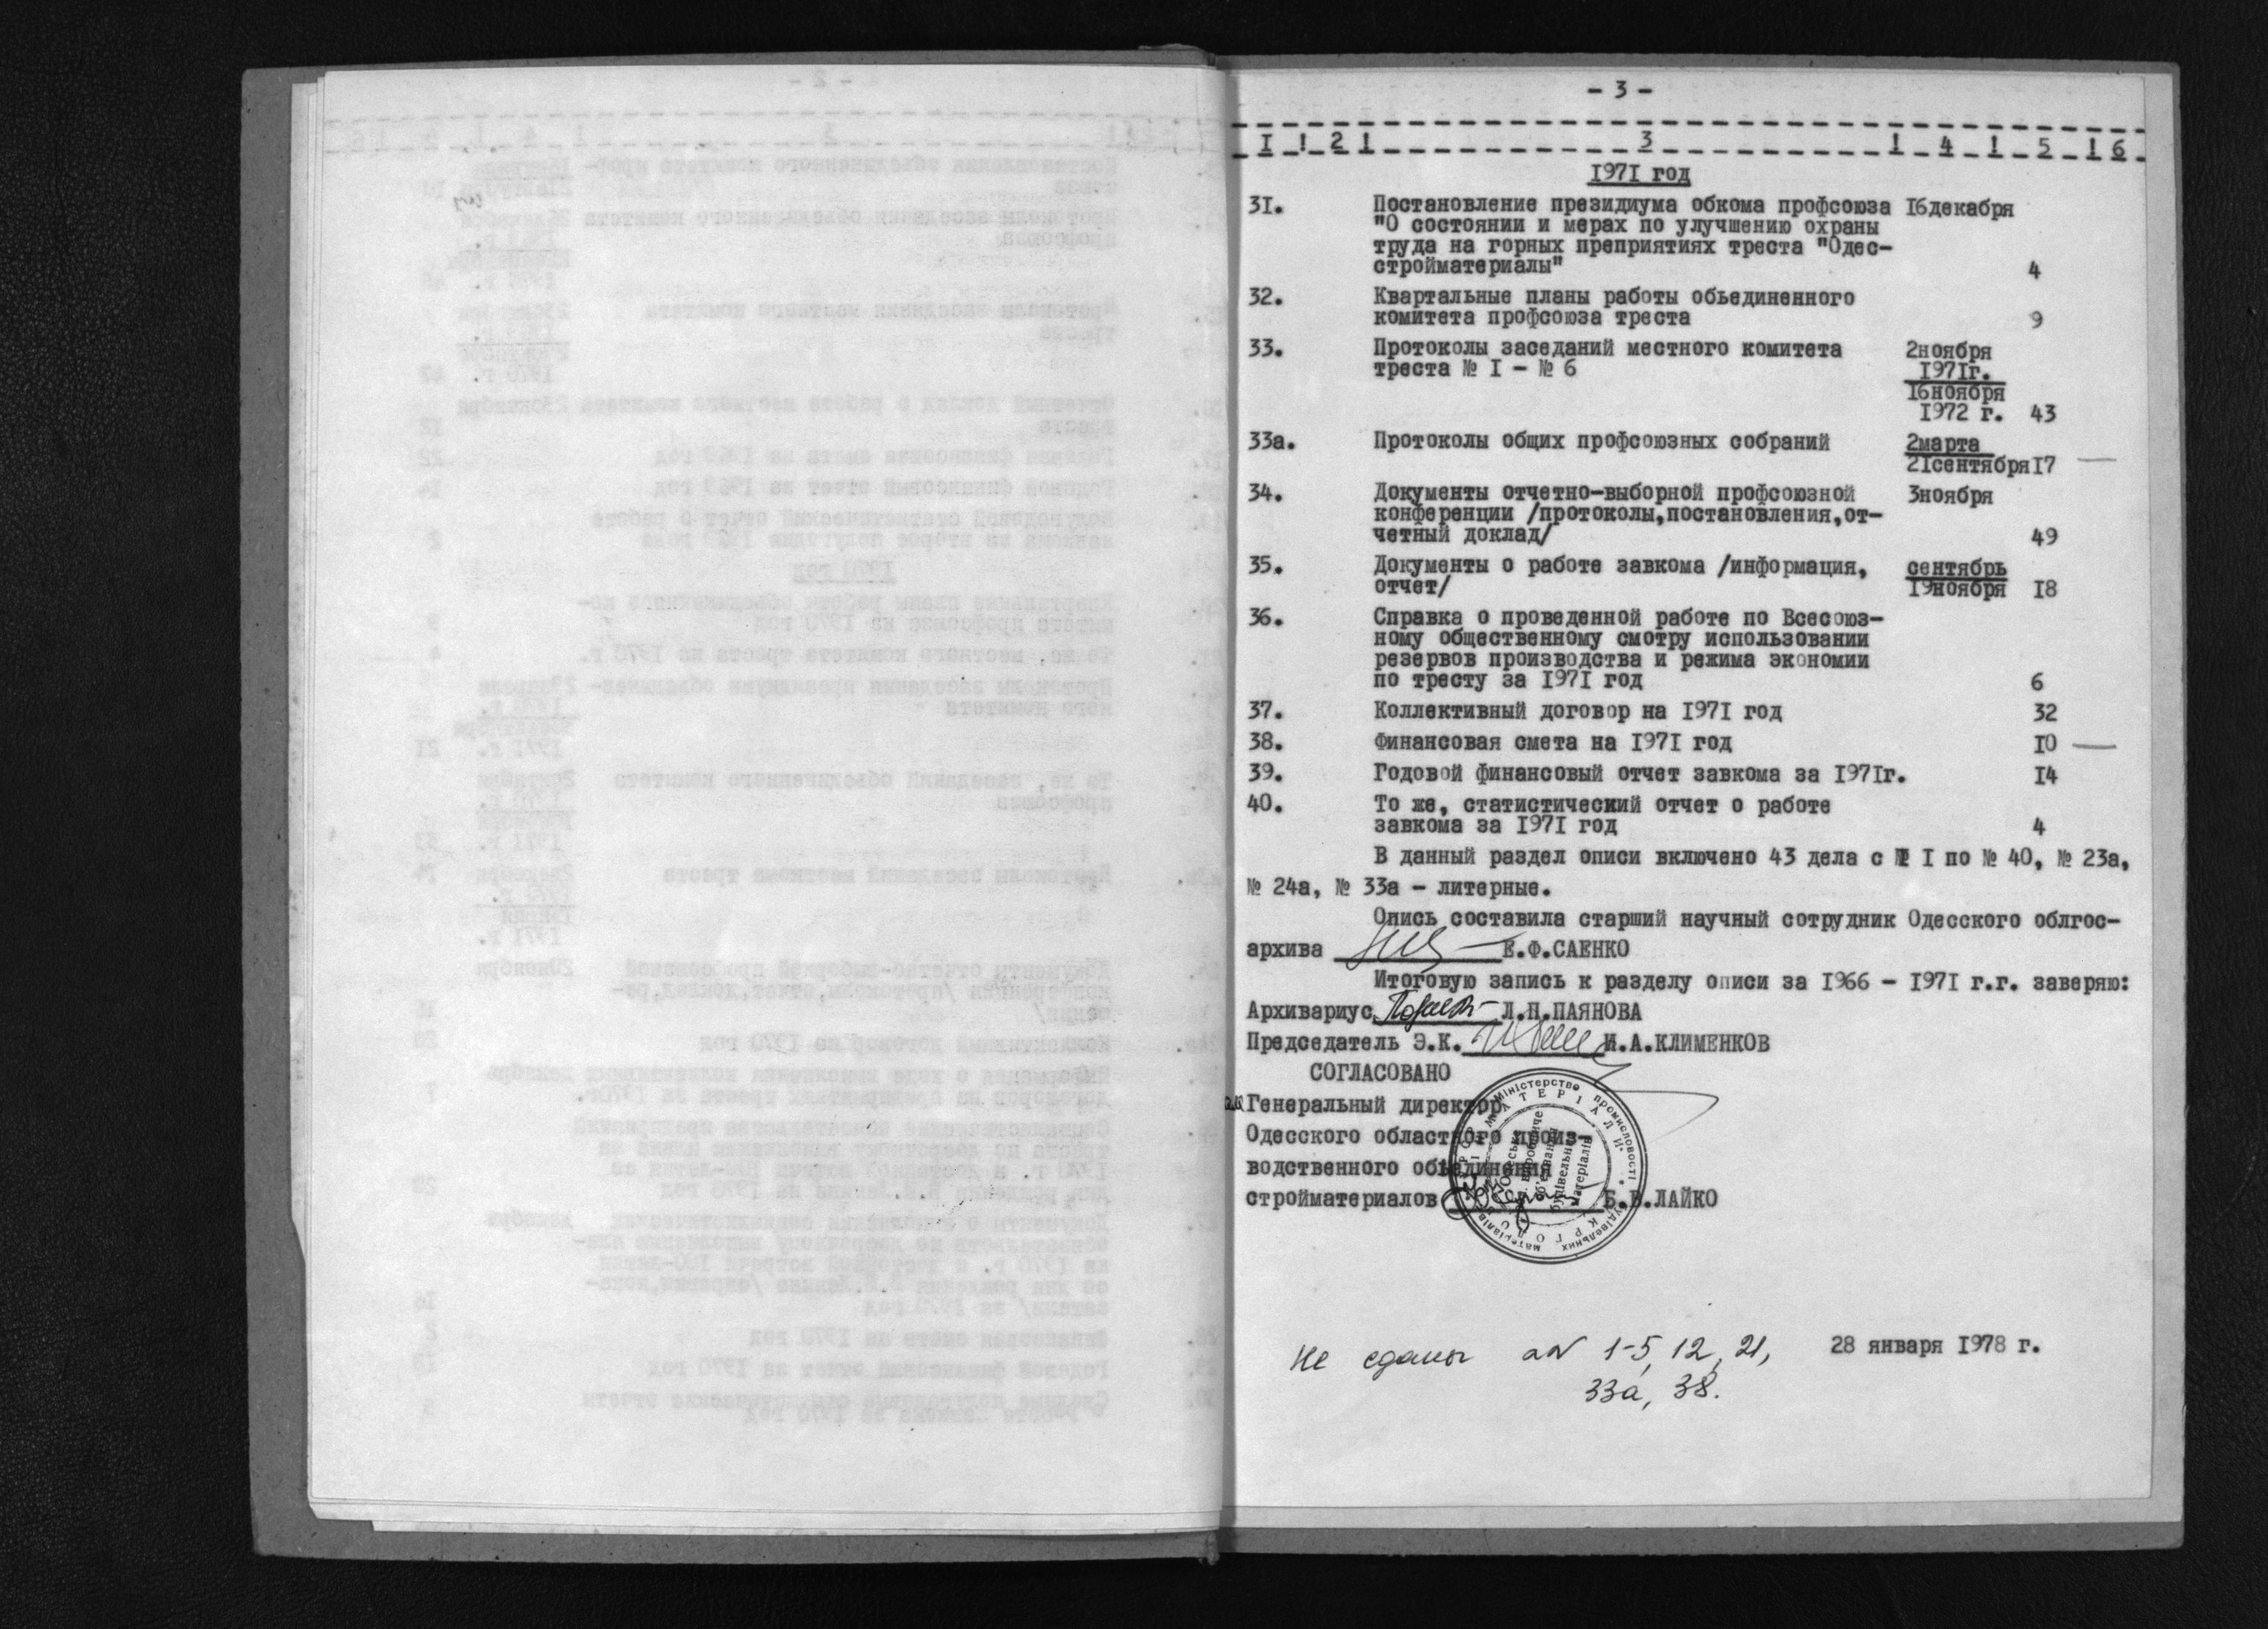 - 3 -
I ! 2 ! 3 ! 4 ! 5 ! 6
1971 год
31. Постановление президиума обкома профсоюза 16декабря
"О состоянии и мерах по улучшению охраны
труда на горных преприятиях треста "Одес-
стройматериалы" 4
32. Квартальные планы работы обьединенного
комитета профсоюза треста 9
33. Протоколы заседаний местного комитета 2ноября
треста № I - № 6 1971г.
16ноября
1972 г. 43
33а. Протоколы общих профсоюзных собраний 2марта
21сентября17
34. Документы отчетно-выборной профсоюзной 3ноября
конференции /протоколы,постановления,от-
четный доклад/ 49
35. Документы о работе завкома /информация, сентябрь
отчет/ 19ноября 18
36. Справка о проведенной работе по Всесоюз-
ному общественному смотру использовании
резервов производства и режима экономии
по тресту за 1971 год 6
37. Коллективный договор на 1971 год 32
38. Финансовая смета на 1971 год 10
39. Годовой финансовый отчет завкома за 1971г. 14
40. То же, статистический отчет о работе
завкома за 1971 год 4
В данный раздел описи включено 43 дела с № I по № 40, № 23а,
№ 24а, № 33а - литерные.
Опись составила старший научный сотрудник Одесского облгос-
архива Е.Ф.САЕНКО
Итоговую запись к разделу описи за 1966 - 1971 г.г. заверяю:
Архивариус Л.Н.ПАЯНОВА
Председатель Э.К. И.А.КЛИМЕНКОВ
СОГЛАСОВАНО
Генеральный директор
Одесского областного произ-
водственного объединения
стройматериалов Б.В.ЛАЙКО
Міністерство промисловості будівельних матеріалів
будівельних
матеріалів
28 января 1978 г.
Не сданы 1-5, 12, 21,
33а, 38.